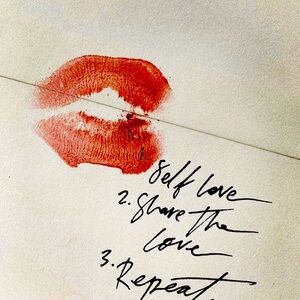 Self love
2. Share the
love
3. Repeat